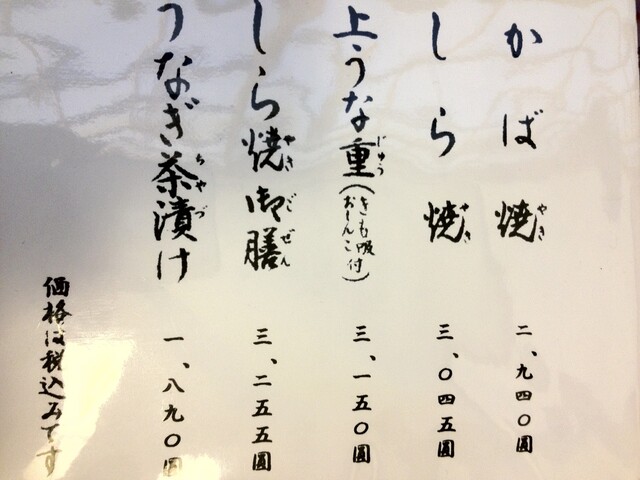 かば焼 二、九四〇圓
しら焼 三、〇四五圓
上うな重(きも吸付おしんこ) 三、一五〇圓
しら焼御膳 三、二五五圓
うなぎ茶漬け 一、八九〇圓
価格は税込みです